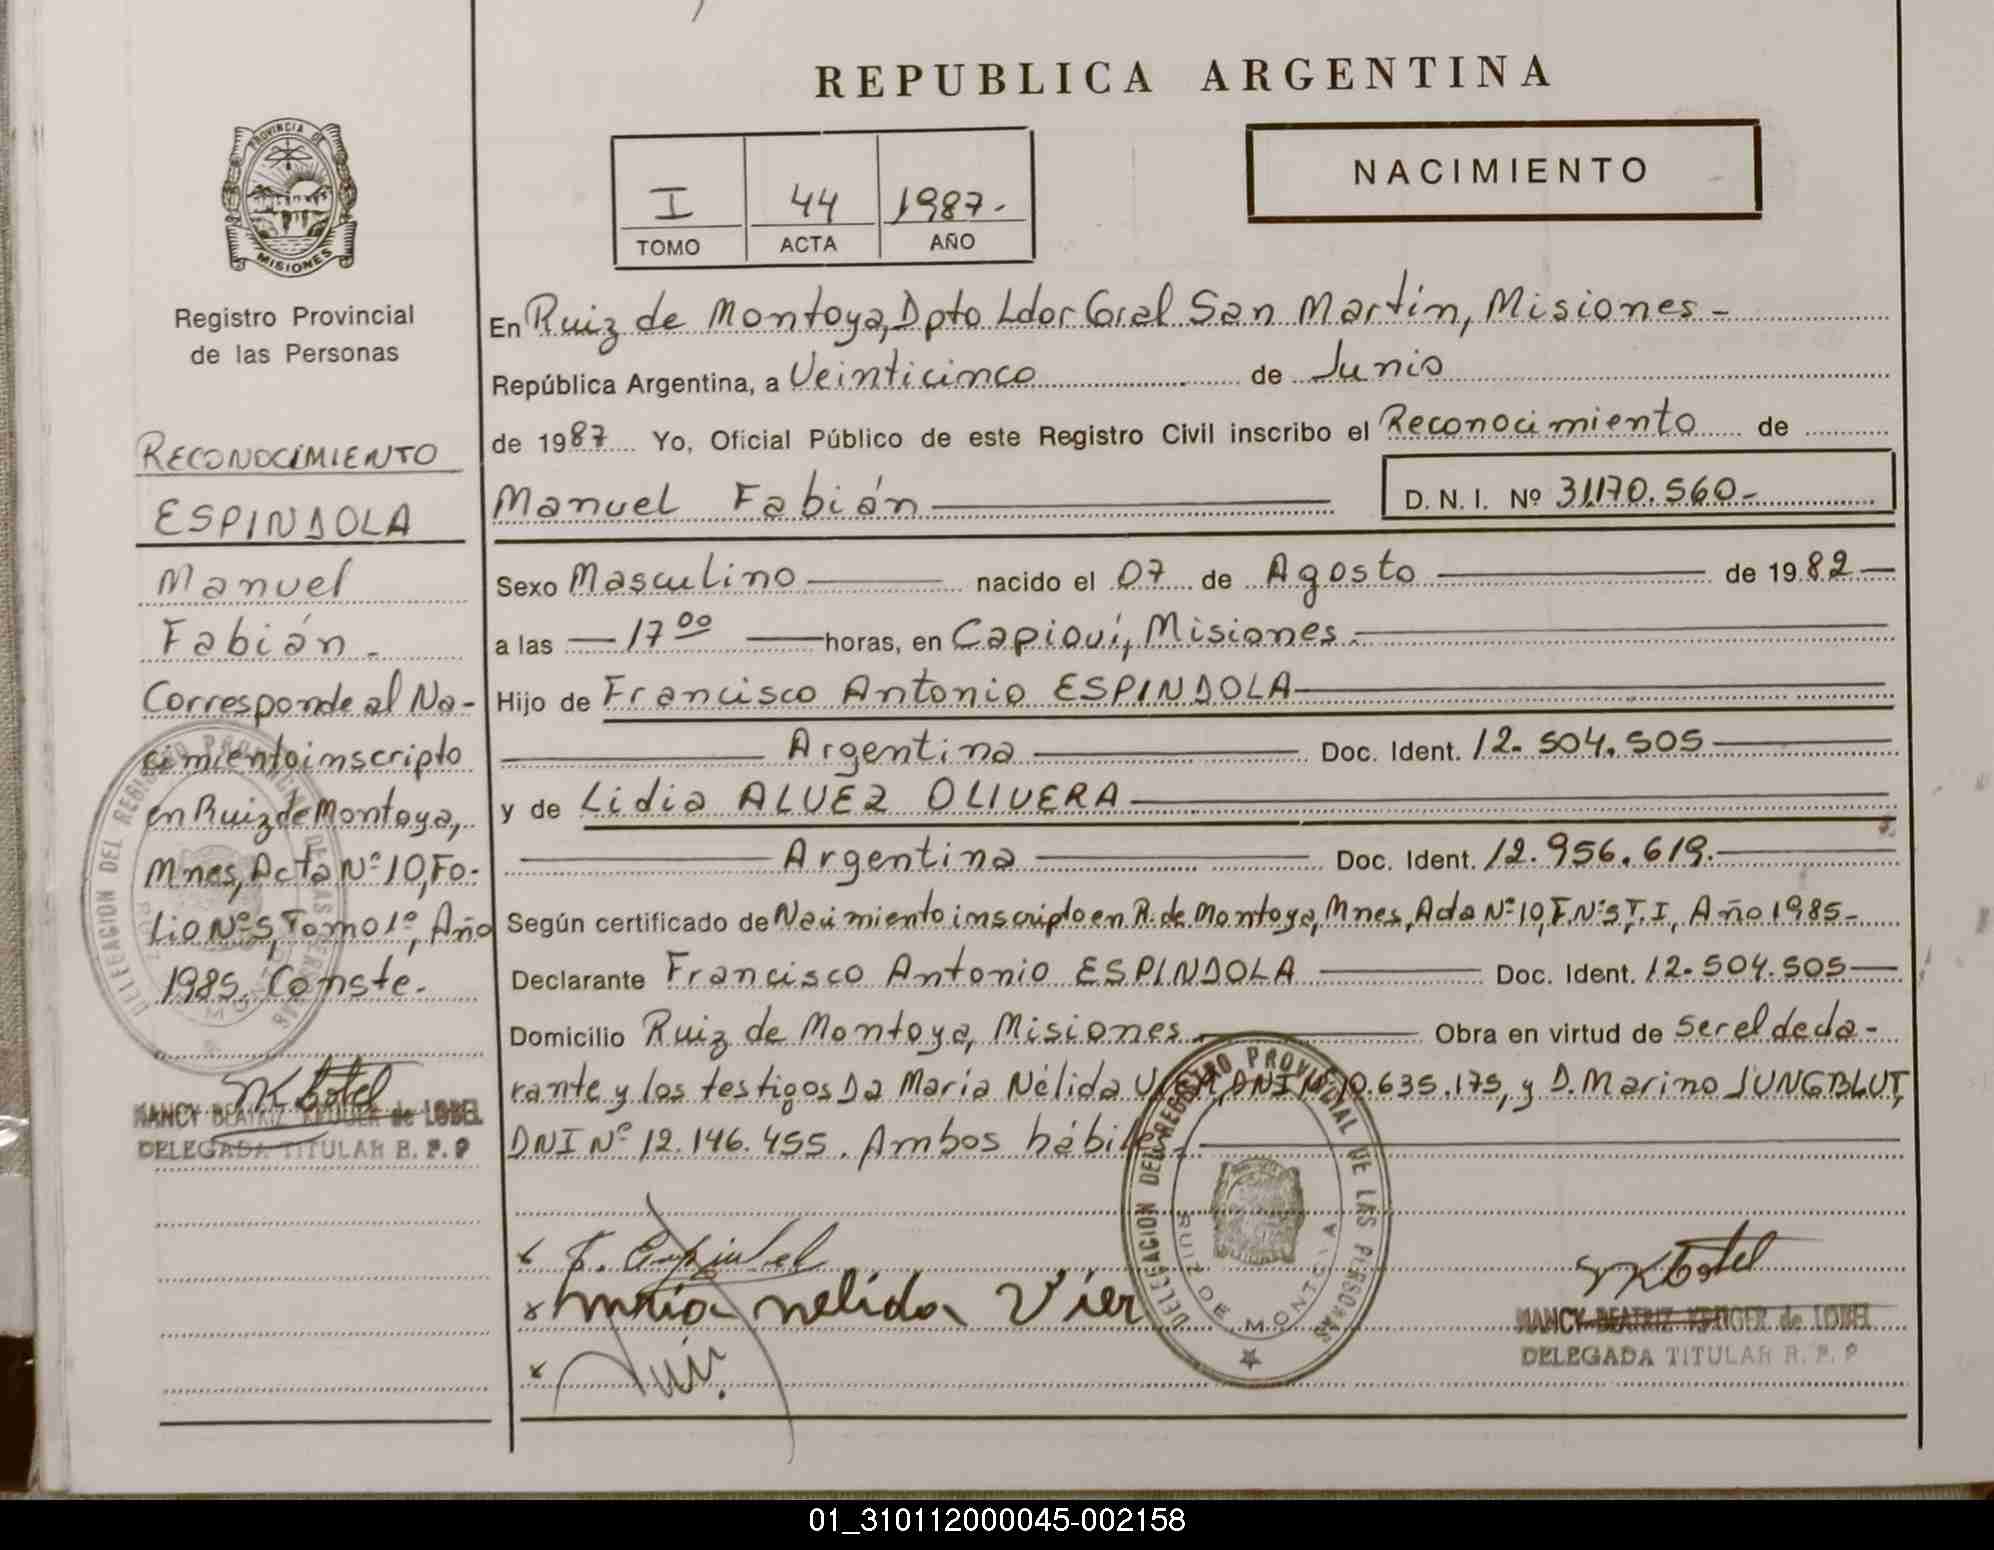 REPUBLICA ARGENTINA
PROVINCIA DE
MISIONES
Registro Provincial
de las Personas
I 44 1987.-
TOMO ACTA AÑO
NACIMIENTO
RECONOCIMIENTO
ESPINDOLA
Manuel
Fabián.-
Corresponde al Na-
cimiento inscripto
en Ruiz de Montoya,
Mnes, Acta Nº 10, Fo-
lio Nº 5, Tomo 1º, Año
1985. Conste.-
NANCY BEATRIZ KRUGER de LOBEL
DELEGADA TITULAR R. P. P
En Ruiz de Montoya, Dpto Ldor Gral San Martín, Misiones -
República Argentina, a Veinticinco de Junio
de 1987 Yo, Oficial Público de este Registro Civil inscribo el Reconocimiento de
Manuel Fabián D. N. I. Nº 31.170.560.-
Sexo Masculino nacido el 07 de Agosto de 1982
a las 17 00 horas, en Capioví, Misiones.
Hijo de Francisco Antonio ESPINDOLA
Argentina Doc. Ident. 12.504.505
y de Lidia ALVEZ OLIVERA
Argentina Doc. Ident. 12.956.619.
Según certificado de Nacimiento inscripto en R. de Montoya, Mnes, Acta Nº 10, F. Nº 5, T. I, Año 1985.-
Declarante Francisco Antonio ESPINDOLA Doc. Ident. 12.504.505
Domicilio Ruiz de Montoya, Misiones. Obra en virtud de ser el decla-
rante y los testigos Da María Nélida DNI Nº 10.635.175, y D. Marino JUNGBLUT,
DNI Nº 12.146.455. Ambos hábiles.
DELEGACION DEL REGISTRO PROVINCIAL DE LAS PERSONAS
RUIZ DE MONTOYA
maria nelida Vier
NANCY BEATRIZ KRUGER de LOBEL
DELEGADA TITULAR R. P. P
01_310112000045-002158